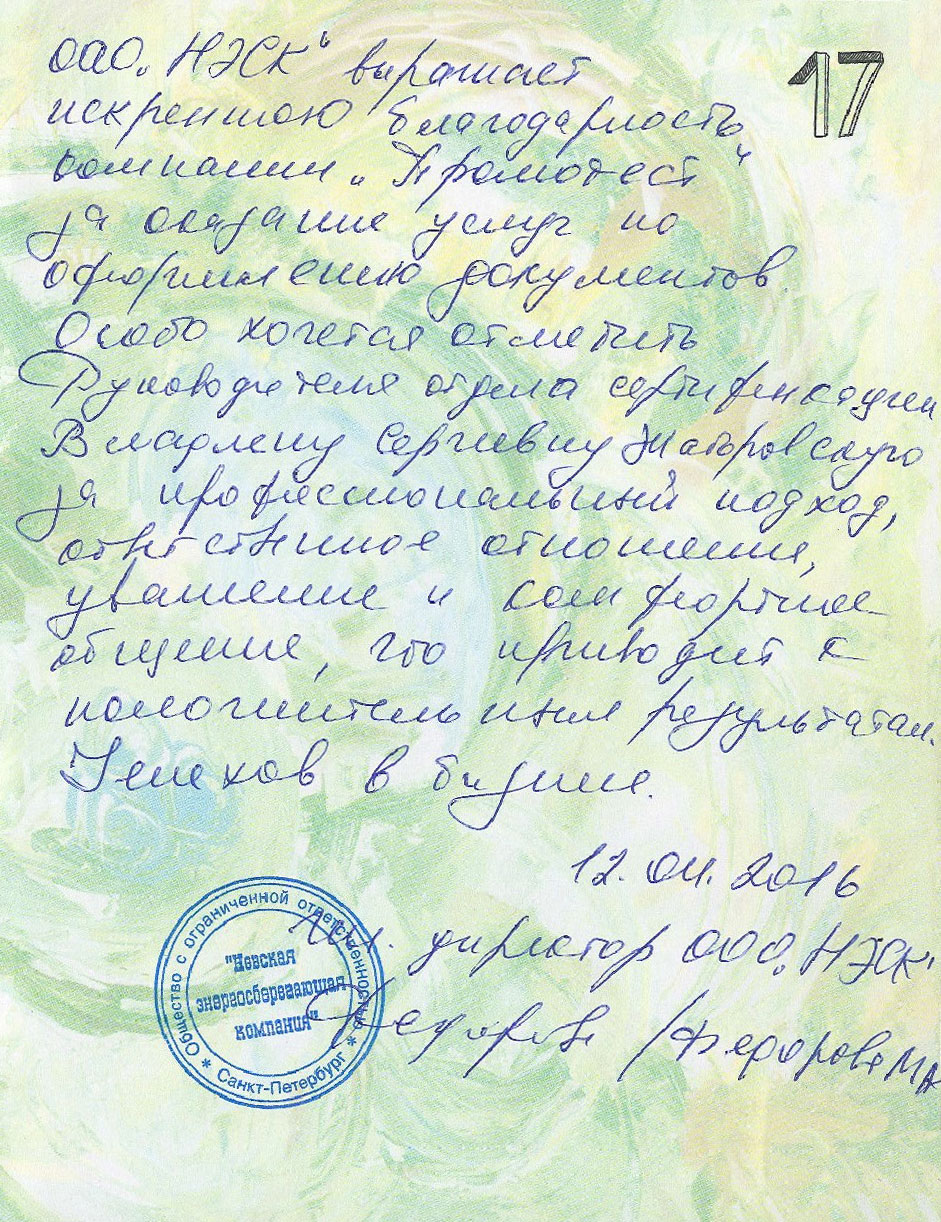 ОАО „НЭСК“ выражает
17
искреннюю благодарность
компании „Промотест“
за оказание услуг по
оформлению документов.
Особо хочется отметить
Руководителя отдела сертификации
Владлену Сергеевну Жаборовскую
за профессиональный подход,
ответственное отношение,
уважение и комфортное
общение, что приводит к
положительным результатам.
Успехов в бизнесе.
12.04.2016
Ген. директор ООО „НЭСК“
Федорова /Федорова М
Общество с ограниченной ответственностью
"Невская
энергосберегающая
компания"
* Санкт-Петербург *